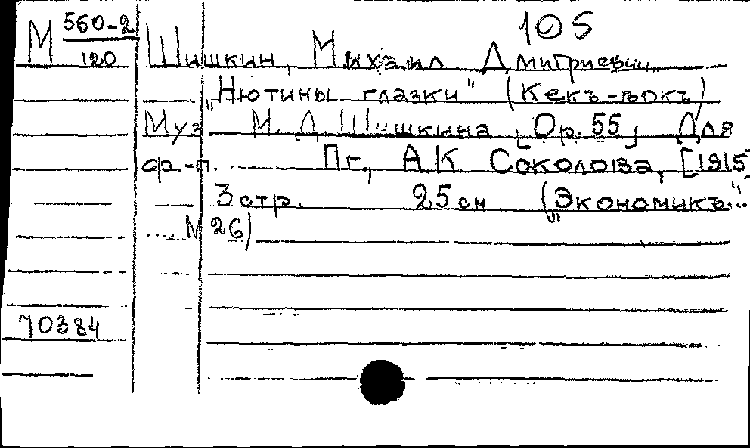 105
М 560-2
120
Шишкин, Михаил Дмитриевич
"Нютины глазки" (Кекъ-вокъ)
Муз. М. Д. Шишкина [Ор. 55] Для
ф.-п. Пг., А. К. Соколова, [1915]
3 стр. 25 см ("Экономикъ"..
.... № 26)
70384